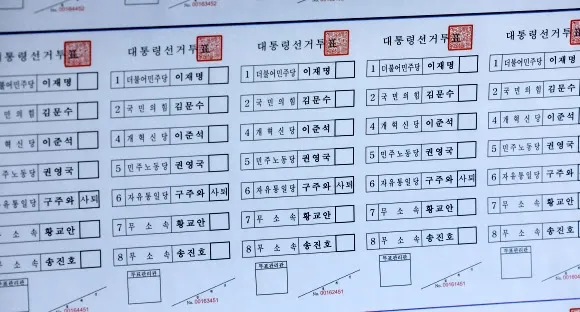 No. 00164452
No. 00163452
대통령선거투표
더불어민주당 이재명
국민의힘 김문수
개혁신당 이준석
민주노동당 권영국
자유통일당 구주와 사퇴
무 소 속 황교안
무 소 속 송진호
No. 00164451
대통령선거투표
1 더불어민주당 이재명
2 국민의힘 김문수
4 개혁신당 이준석
5 민주노동당 권영국
6 자유통일당 구주와 사퇴
7 무 소 속 황교안
8 무 소 속 송진호
투표관리관
No. 00163451
대통령선거투표
1 더불어민주당 이재명
2 국민의힘 김문수
4 개혁신당 이준석
5 민주노동당 권영국
6 자유통일당 구주와 사퇴
7 무 소 속 황교안
8 무 소 속 송진호
투표관리관
No. 00162451
대통령선거투표
1 더불어민주당 이재명
2 국민의힘 김문수
4 개혁신당 이준석
5 민주노동당 권영국
6 자유통일당 구주와 사퇴
7 무 소 속 황교안
8 무 소 속 송진호
투표관리관
No. 00161451
대통령선거투
1 더불어민주당 이재명
2 국민의힘 김문수
4 개혁신당 이준석
5 민주노동당 권영국
6 자유통일당 구주와
7 무 소 속 황교안
8 무 소 속 송진호
투표관리관